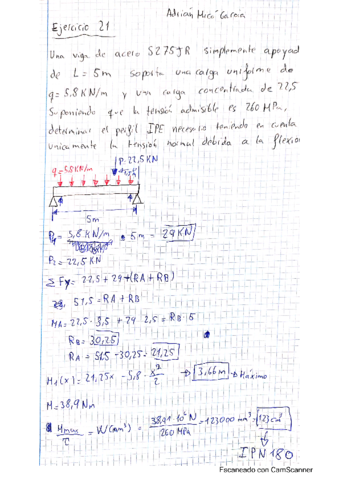 Adrián Micó García
Ejercicio 21
Una viga de acero S275JR simplemente apoyad
de L = 5m soporta una carga uniforme de
q = 5.8 KN/m y una carga concentrada de 22,5
Suponiendo que la tensión admisible es 260 MPa,
determinar el perfil IPE necesario teniendo en cuenta
unicamente la tensión normal debida a la flexion
P: 22,5KN
q=5.8KN/m
5m
= 5,8 KN/m · 5m = 29KN
P2 = 22,5KN
ΣFy = 22,5 + 29 = (RA + RB)
51,5 = RA + RB
MA = 22,5 · 3,5 + 29 · 2,5 = RB · 5
RB = 30,25
RA = 51,5 - 30,25 = 21,25
M1(x) = 21,25x - 5,8 · x²/2 → 3,66m → Máximo
M = 38,9 Nm
Mmax/τ = W(mm³) = 38,9 · 10⁶ N/260 MPa = 123000 mm³ = 123cm³
IPN 180
Escaneado con CamScanner